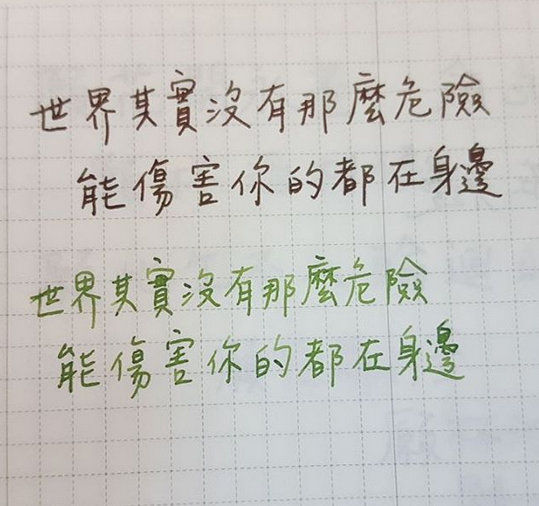 世界其實沒有那麼危險
能傷害你的都在身邊
世界其實沒有那麼危險
能傷害你的都在身邊